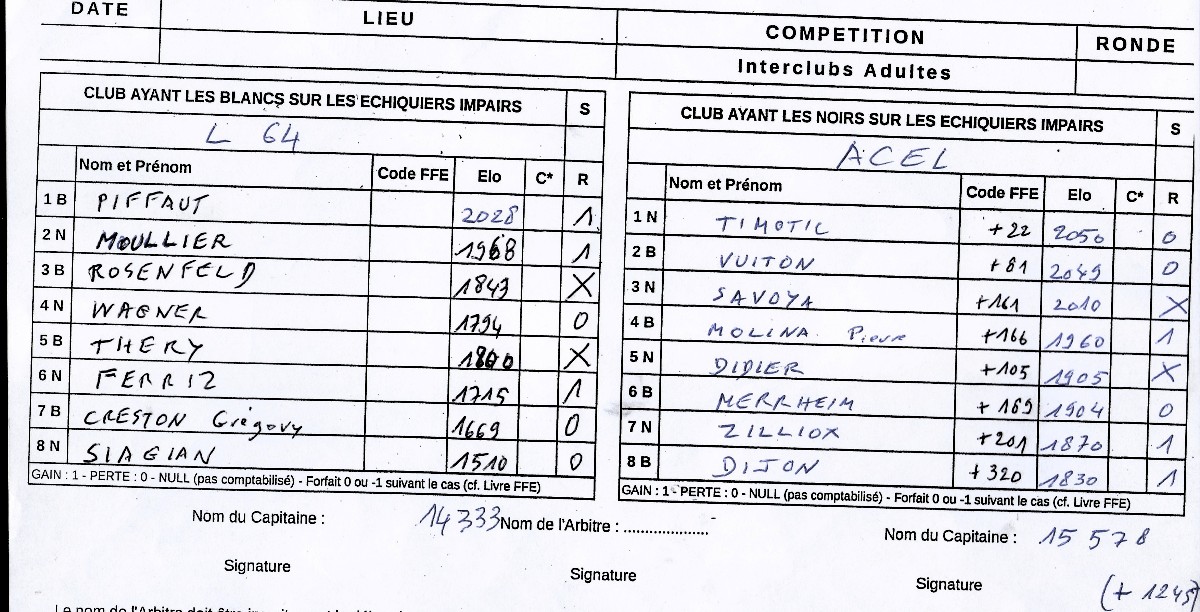 DATE LIEU COMPETITION RONDE
Interclubs Adultes
CLUB AYANT LES BLANCS SUR LES ECHIQUIERS IMPAIRS S
L 64
Nom et Prénom Code FFE Elo C* R
1 B PIFFAUT 2028 1
2 N MOULLIER 1968 1
3 B ROSENFELD 1843 X
4 N WAGNER 1794 0
5 B THERY 1800 X
6 N FERRIZ 1715 1
7 B CRESTON Grégory 1669 0
8 N SIAGIAN 1510 0
GAIN : 1 - PERTE : 0 - NULL (pas comptabilisé) - Forfait 0 ou -1 suivant le cas (cf. Livre FFE)
CLUB AYANT LES NOIRS SUR LES ECHIQUIERS IMPAIRS S
ACEL
Nom et Prénom Code FFE Elo C* R
1 N TIMOTIC +22 2050 0
2 B VUITON +81 2049 0
3 N SAVOYA +161 2010 X
4 B MOLINA Pierre +166 1960 1
5 N DIDIER +105 1905 X
6 B MERRHEIM +189 1904 0
7 N ZILLIOX +201 1870 1
8 B DIJON +320 1830 1
GAIN : 1 - PERTE : 0 - NULL (pas comptabilisé) - Forfait 0 ou -1 suivant le cas (cf. Livre FFE)
Nom du Capitaine : 14333 Nom de l'Arbitre : .................... Nom du Capitaine : 15 578
Signature Signature Signature
(+ 1245)